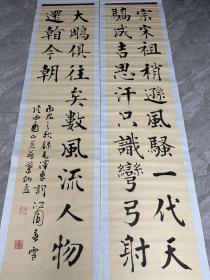 宗宋祖稍遜風騷一代天
驕成吉思汗只識彎弓射
大鵰俱往矣數風流人物
還看今朝
之秋錄毛澤東詞沁園春雪